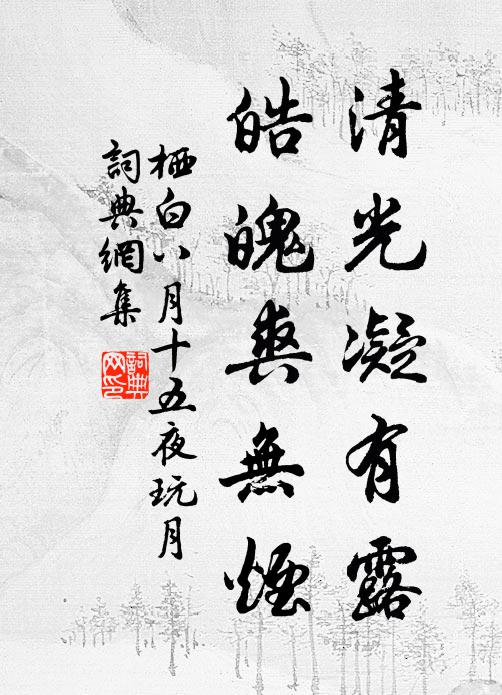 清光凝有露
皓魄爽無煙
栖白八月十五夜玩月
詞典網集
詞典网印